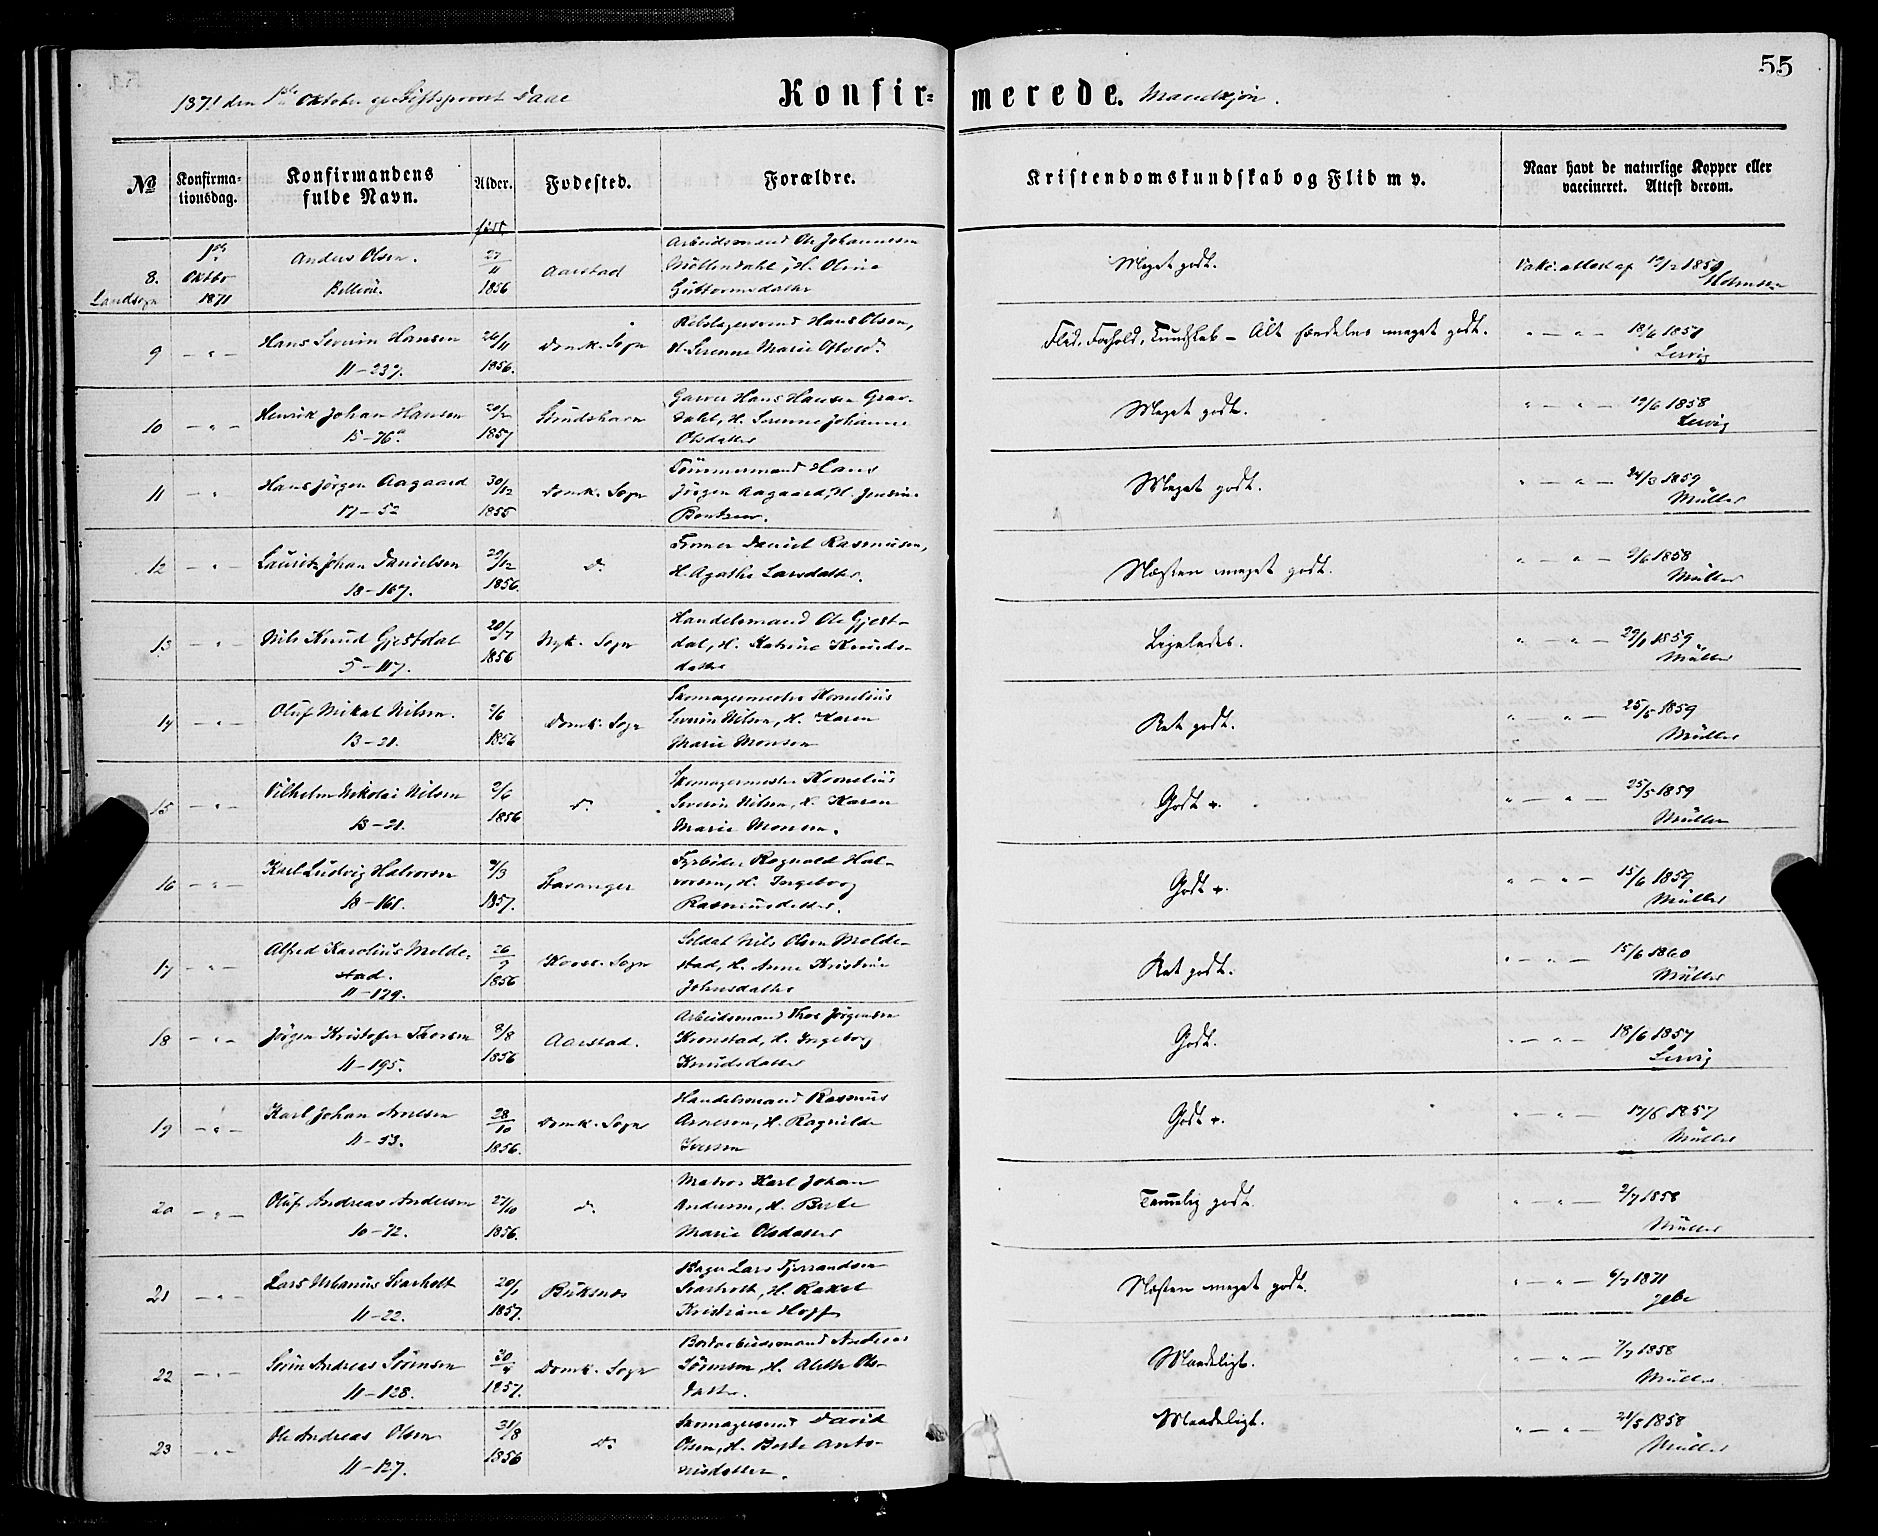 55
1871 den 1ste Oktober af Stiftsprovst Daae
Konfir- merede. Mandkjøn.
No
Konfirma- tionsdag.
Konfirmandens fulde Navn.
Alder.
Fødested.
Forældre.
Kristendomskundskab og Flid m v.
Naar havt de naturlige Kopper eller vaccineret. Attest derom.
født
8. Landsogn
1ste Oktbr 1871
Anders Olsen.
27/11 1856
Aarstad
Arbeidsmand Ole Johannesen
Møllendahl, H. Oline
Guttormsdatter
Meget godt.
Vakc. attest af
9 - " -
Hans Severin Hansen
11-237.
26/11 1856.
Domk. Sogn
Rebslagersvend Hans Olsen,
H. Serenne Marie
Flid, Forhold, Kundskab - Alt særdeles meget godt.
" - " - 18/6 1857
Lervig
10 - " -
Henrik Johan Hansen
15-76a
20/2 1857
Garver Hans Hansen Grav-
dahl, H. Serenne Johanne
Olsdatter
Meget godt.
" - " - 19/6 1858
Lervig
11 - "
Hans Jørgen Aagaard
17-52
30/12 1855
Domk. Sogn
Tømmermand Hans
Jørgen Aagaard, H. Jensine
Berntsen.
Meget godt.
" - " - 24/3 1859
Müller
12 - " -
Lauritz Johan Danielsen
18-167.
29/12 1856.
Do
Daniel Rasmusen,
H. Agathe Larsdatter.
Næsten meget godt.
" - " - 2/6 1858
Müller
13 - "
Nils Knud Gjestdal
5-117.
20/7 1856
Nyk. Sogn
Handelsmand Ole Gjest-
dal, H. Katrine Knuds-
datter
Ligeledes.
" - " - 29/9 1859
Müller
14 - " -
Oluf Mikal Nilsen.
13-21.
2/6 1856
Domk. Sogn
Skomagermester Kornelius
Severin Nilsen, H. Karen
Marie Monsen
Ret godt.
" - " - 25/5 1859
Müller
15 - "
Vilhelm Nikolai Nilsen
13-21.
2/6 1856
Do
Skomagermester Kornelius
Severin Nilsen, H. Karen
Marie Monsen.
Godt +.
" - " - 25/5 1859
Müller
16 - " -
Karl Ludvig Halvorsen
18-161.
9/3 1857.
Stavanger
Fyrbøder Ragnald Hal-
vorsen, H. Ingeborg
Rasmusdatter.
Godt +.
" - " - 15/6 1859
Müller
17 - " -
Alfred Karolius Molde-
stad.
11-129.
26/9 1856
Korsk. Sogn
Soldat Nils Olsen Molde-
stad, H. Anne Kristine
Johnsdatter
Ret godt.
" - " - 15/6 1860
Müller
18 - " -
Jørgen Kristofer Thorsen
11-195.
8/8 1856
Aarstad.
Arbeidsmand Thor Jørgensen
Kronstad, H. Ingeborg
Knudsdatter
Godt.
" - " - 18/6 1857
Lervig
19 - " -
Karl Johan Arnesen
11-53.
28/10 1856.
Domk. Sogn
Handelsmand Rasmus
Arnesen, H. Ragnilde
Iversen
Godt +.
" - " - 17/6 1857
Müller
20 - " -
Oluf Andreas Andersen
10-72.
27/10 1856.
Do
Matros Karl Johan
Andersen, H. Berte
Marie Olsdatter
Temmelig godt.
" - " - 2/7 1858
Müller
21 - " -
Lars Urbanus Skarholt
11-22.
20/1 1857.
Buksnes
Bager Lars Fjerrandsen
Skarholt, H. Rakel
Kristiane Hoff
Næsten meget godt.
" - " - 6/7 1871
Jebe
22 - " -
Sørin Andreas Sørensen
11-128.
30/4 1857.
Domk. Sogn
Bordarbeidsmand Andreas
Sørensen, H. Alette Ols-
datter.
Maadeligt.
" - " - 7/7 1858
Müller
23 - " -
Ole Andreas Olsen
11-127.
31/8 1856
Do
Skomagersvend David
Olsen, H. Berte Anto-
nisdatter.
Maadeligt.
" - " - 28/5 1858
Müller